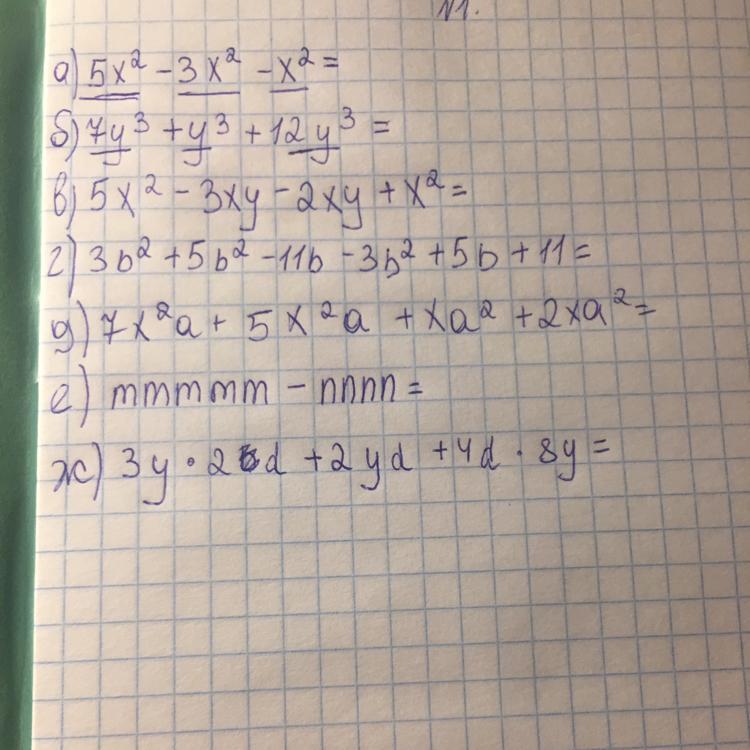 а) 5x² - 3x² - x² =
б) 7y³ + y³ + 12y³ =
в) 5x² - 3xy - 2xy + x² =
г) 3b² + 5b² - 11b - 3b² + 5b + 11 =
д) 7x²a + 5x²a + xa² + 2xa² =
е) mmmmm - nnnn =
ж) 3y · 2d + 2yd + 4d · 8y =